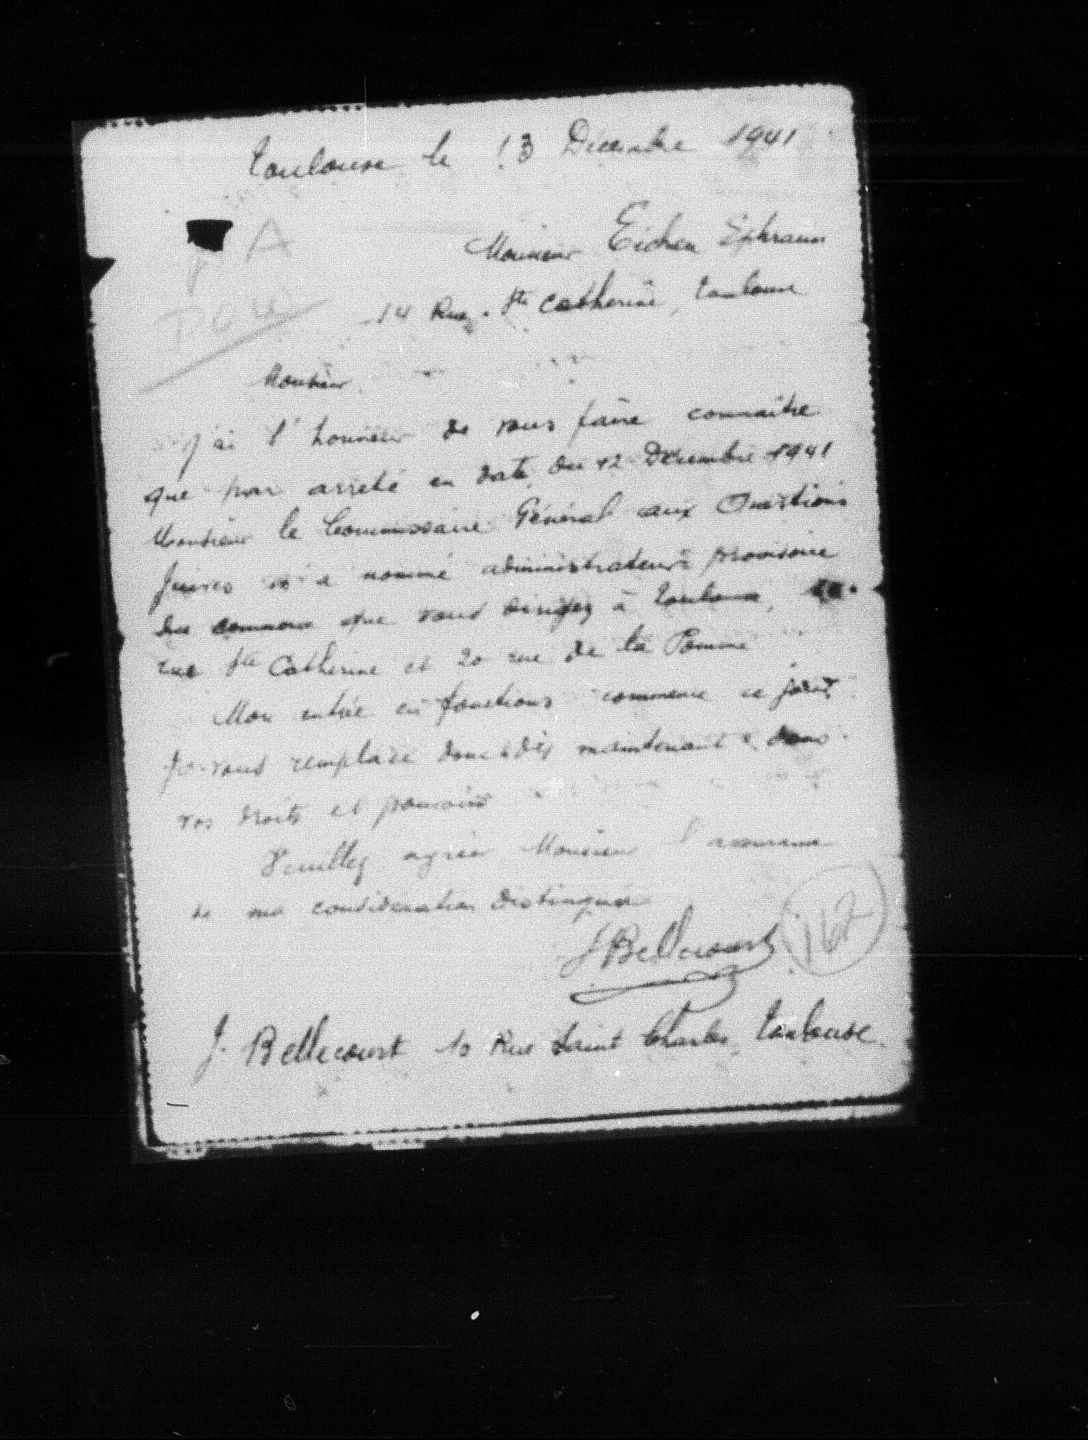 Toulouse le 13 Décembre 1941
A
Monsieur Eichen Ephraim
14 Rue Ste Catherine, Toulouse
Monsieur
J'ai l'honneur de vous faire connaitre
que par arrêté en date du 12 Décembre 1941
Monsieur le Commissaire Général aux Questions
Juives m'a nommé administrateur provisoire
du commerce que vous dirigez à Toulouse,
rue Ste Catherine et 20 rue de la Pomme
Mon entrée en fonctions commence ce jour
Je vous remplace donc dès maintenant dans
vos droits et pouvoirs
Veuillez agréer Monsieur l'assurance
de ma considération distinguée
J Bellecourt
167
J. Bellecourt 10 Rue Saint Charles, Toulouse.